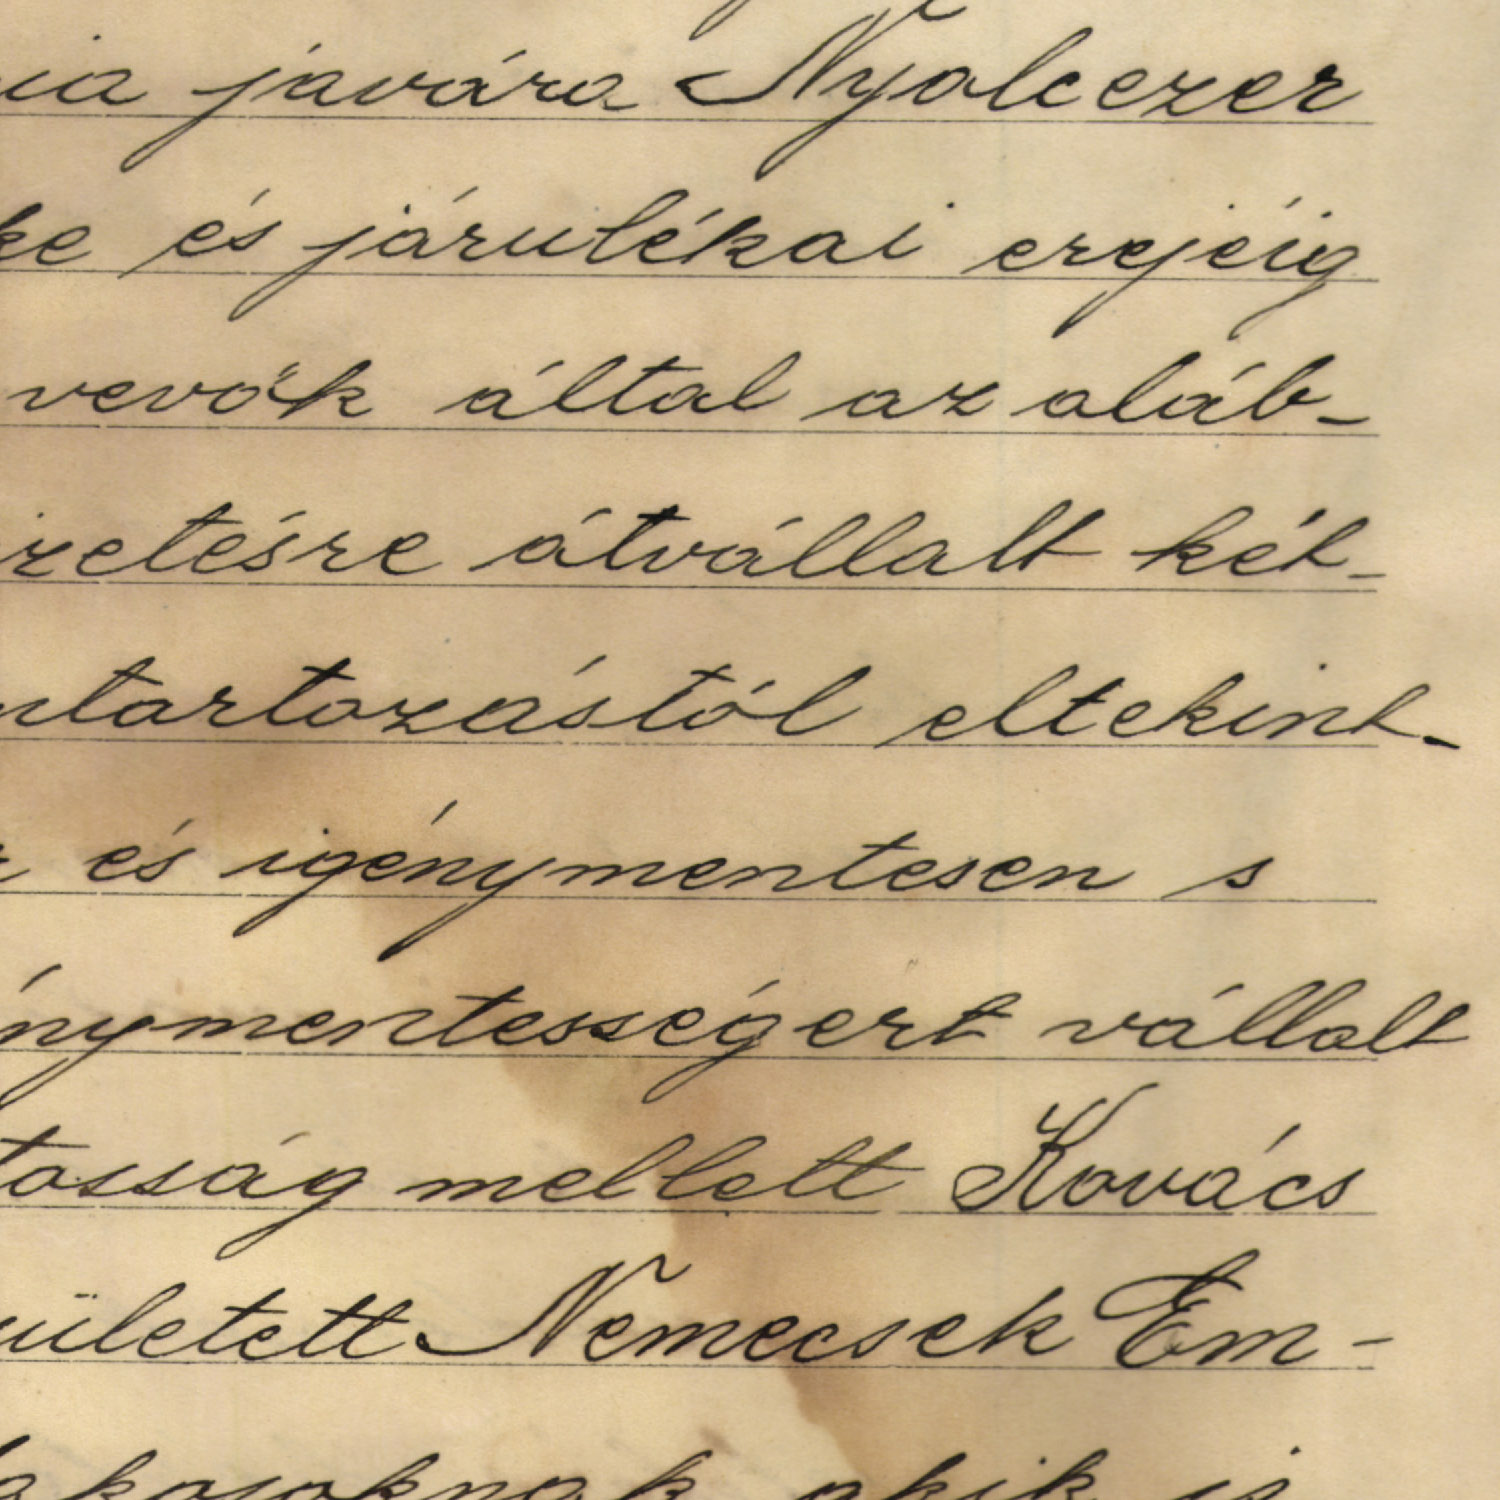 ia javára Nyolcezer
ke és járulékai erejéig
vevők által az aláb-
zetésre átvállalt két-
ntartozástól eltekint-
és igénymentesen s
énymentességért vállalt
tosság mellett Kovács
született Nemecsek Em-
lakosoknak, akik is